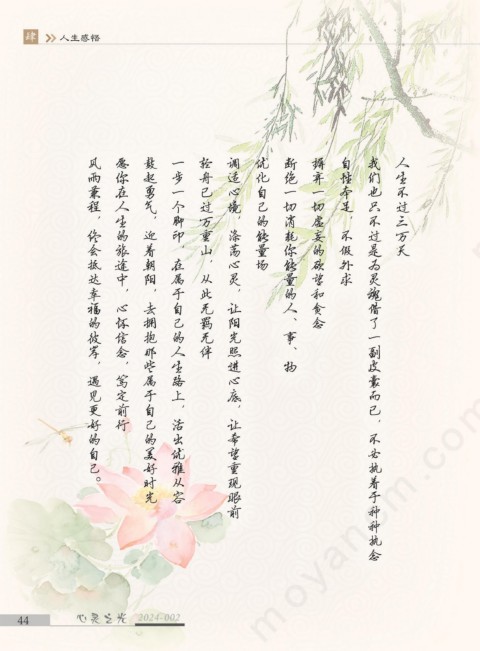 肆 人生感悟
人生不过三万天
我们也只不过是为灵魂借了一副皮囊而已，不必执着于种种执念
自性本足，不假外求
摒弃一切虚妄的欲望和贪念
断绝一切消耗你能量的人、事、物
优化自己的能量场
调适心境，涤荡心灵，让阳光照进心底，让希望重现眼前
轻舟已过万重山，从此无羁无绊
一步一个脚印，在属于自己的人生路上，活出优雅从容
鼓起勇气，迎着朝阳，去拥抱那些属于自己的美好时光
愿你在人生的旅途中，心怀信念，笃定前行
风雨兼程，终会抵达幸福的彼岸，遇见更好的自己。
44 心灵之光 2024-002
moyancm.com